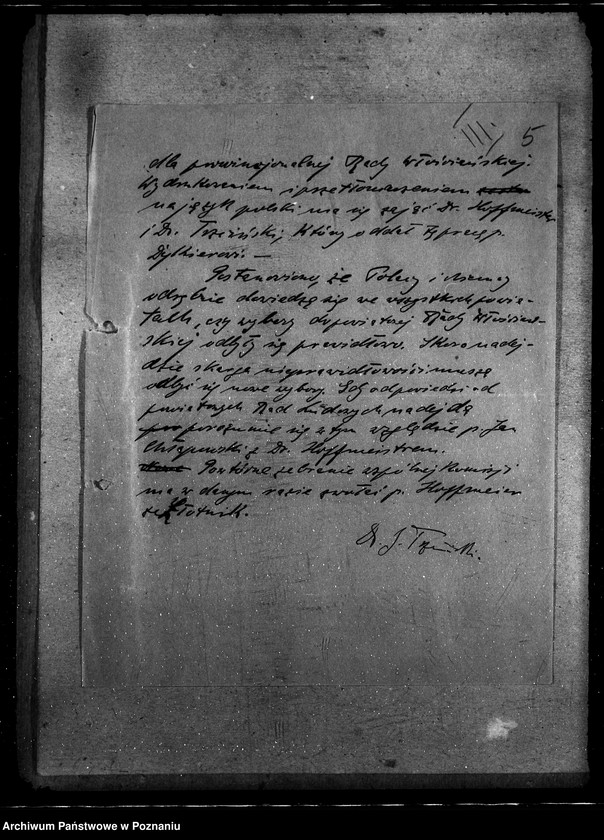 III. 5
dla prowincjonalnej Rady Włościańskiej.
Wydrukowaniem i przetłomaczeniem
na język polski ma się zająć Dr. Hoffmeister
i Dr. Trzciński, który oddał tę pracę p.
Postanowiono, że Polacy i Niemcy
odrębnie dowiedzą się we wszystkich powia-
tach, czy wybory do powiatowej Rady Włościań-
skiej odbyły się prawidłowo. Skoro nadej-
dzie skarga nieprawidłowości muszą
odbyć się nowe wybory. Gdy odpowiedzi od
powiatowych Rad Ludowych nadejdą
porozumie się w tym względzie p. Jan
Chłapowski z Dr. Hoffmeistrem.
Powtórne zebranie wspólnej Komisji
ma w danym razie zwołać p. Hoffmeister
Dr. J. Trzciński.
Archiwum Państwowe w Poznaniu